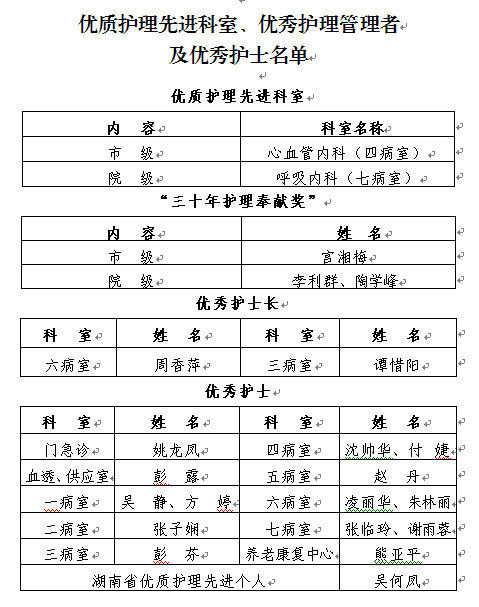 优质护理先进科室、优秀护理管理者
及优秀护士名单
优质护理先进科室
内 容 科室名称
市 级 心血管内科（四病室）
院 级 呼吸内科（七病室）
“三十年护理奉献奖”
内 容 姓 名
市 级 宫湘梅
院 级 李利群、陶学峰
优秀护士长
科 室 姓 名 科 室 姓 名
六病室 周香萍 三病室 谭惜阳
优秀护士
科 室 姓 名 科 室 姓 名
门急诊 姚龙凤 四病室 沈帅华、付 婕
血透、供应室 彭 露 五病室 赵 丹
一病室 吴 静、方 婷 六病室 凌丽华、朱林丽
二病室 张子娴 七病室 张临玲、谢雨蓉
三病室 彭 芬 养老康复中心 熊亚平
湖南省优质护理先进个人 吴何凤